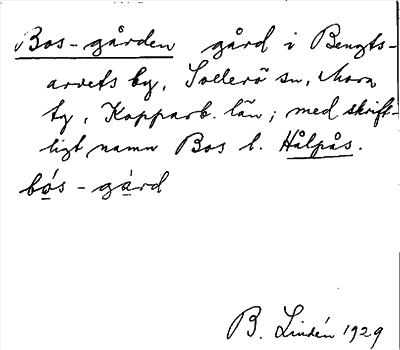 Bos-gården gård i Bengts-
arvets by, Sollerö sn, Mora
tg, Kopparb. län; med skrift-
ligt namn Bos l. Hålpås.
bo̲s-gård
B. Lindén 1929